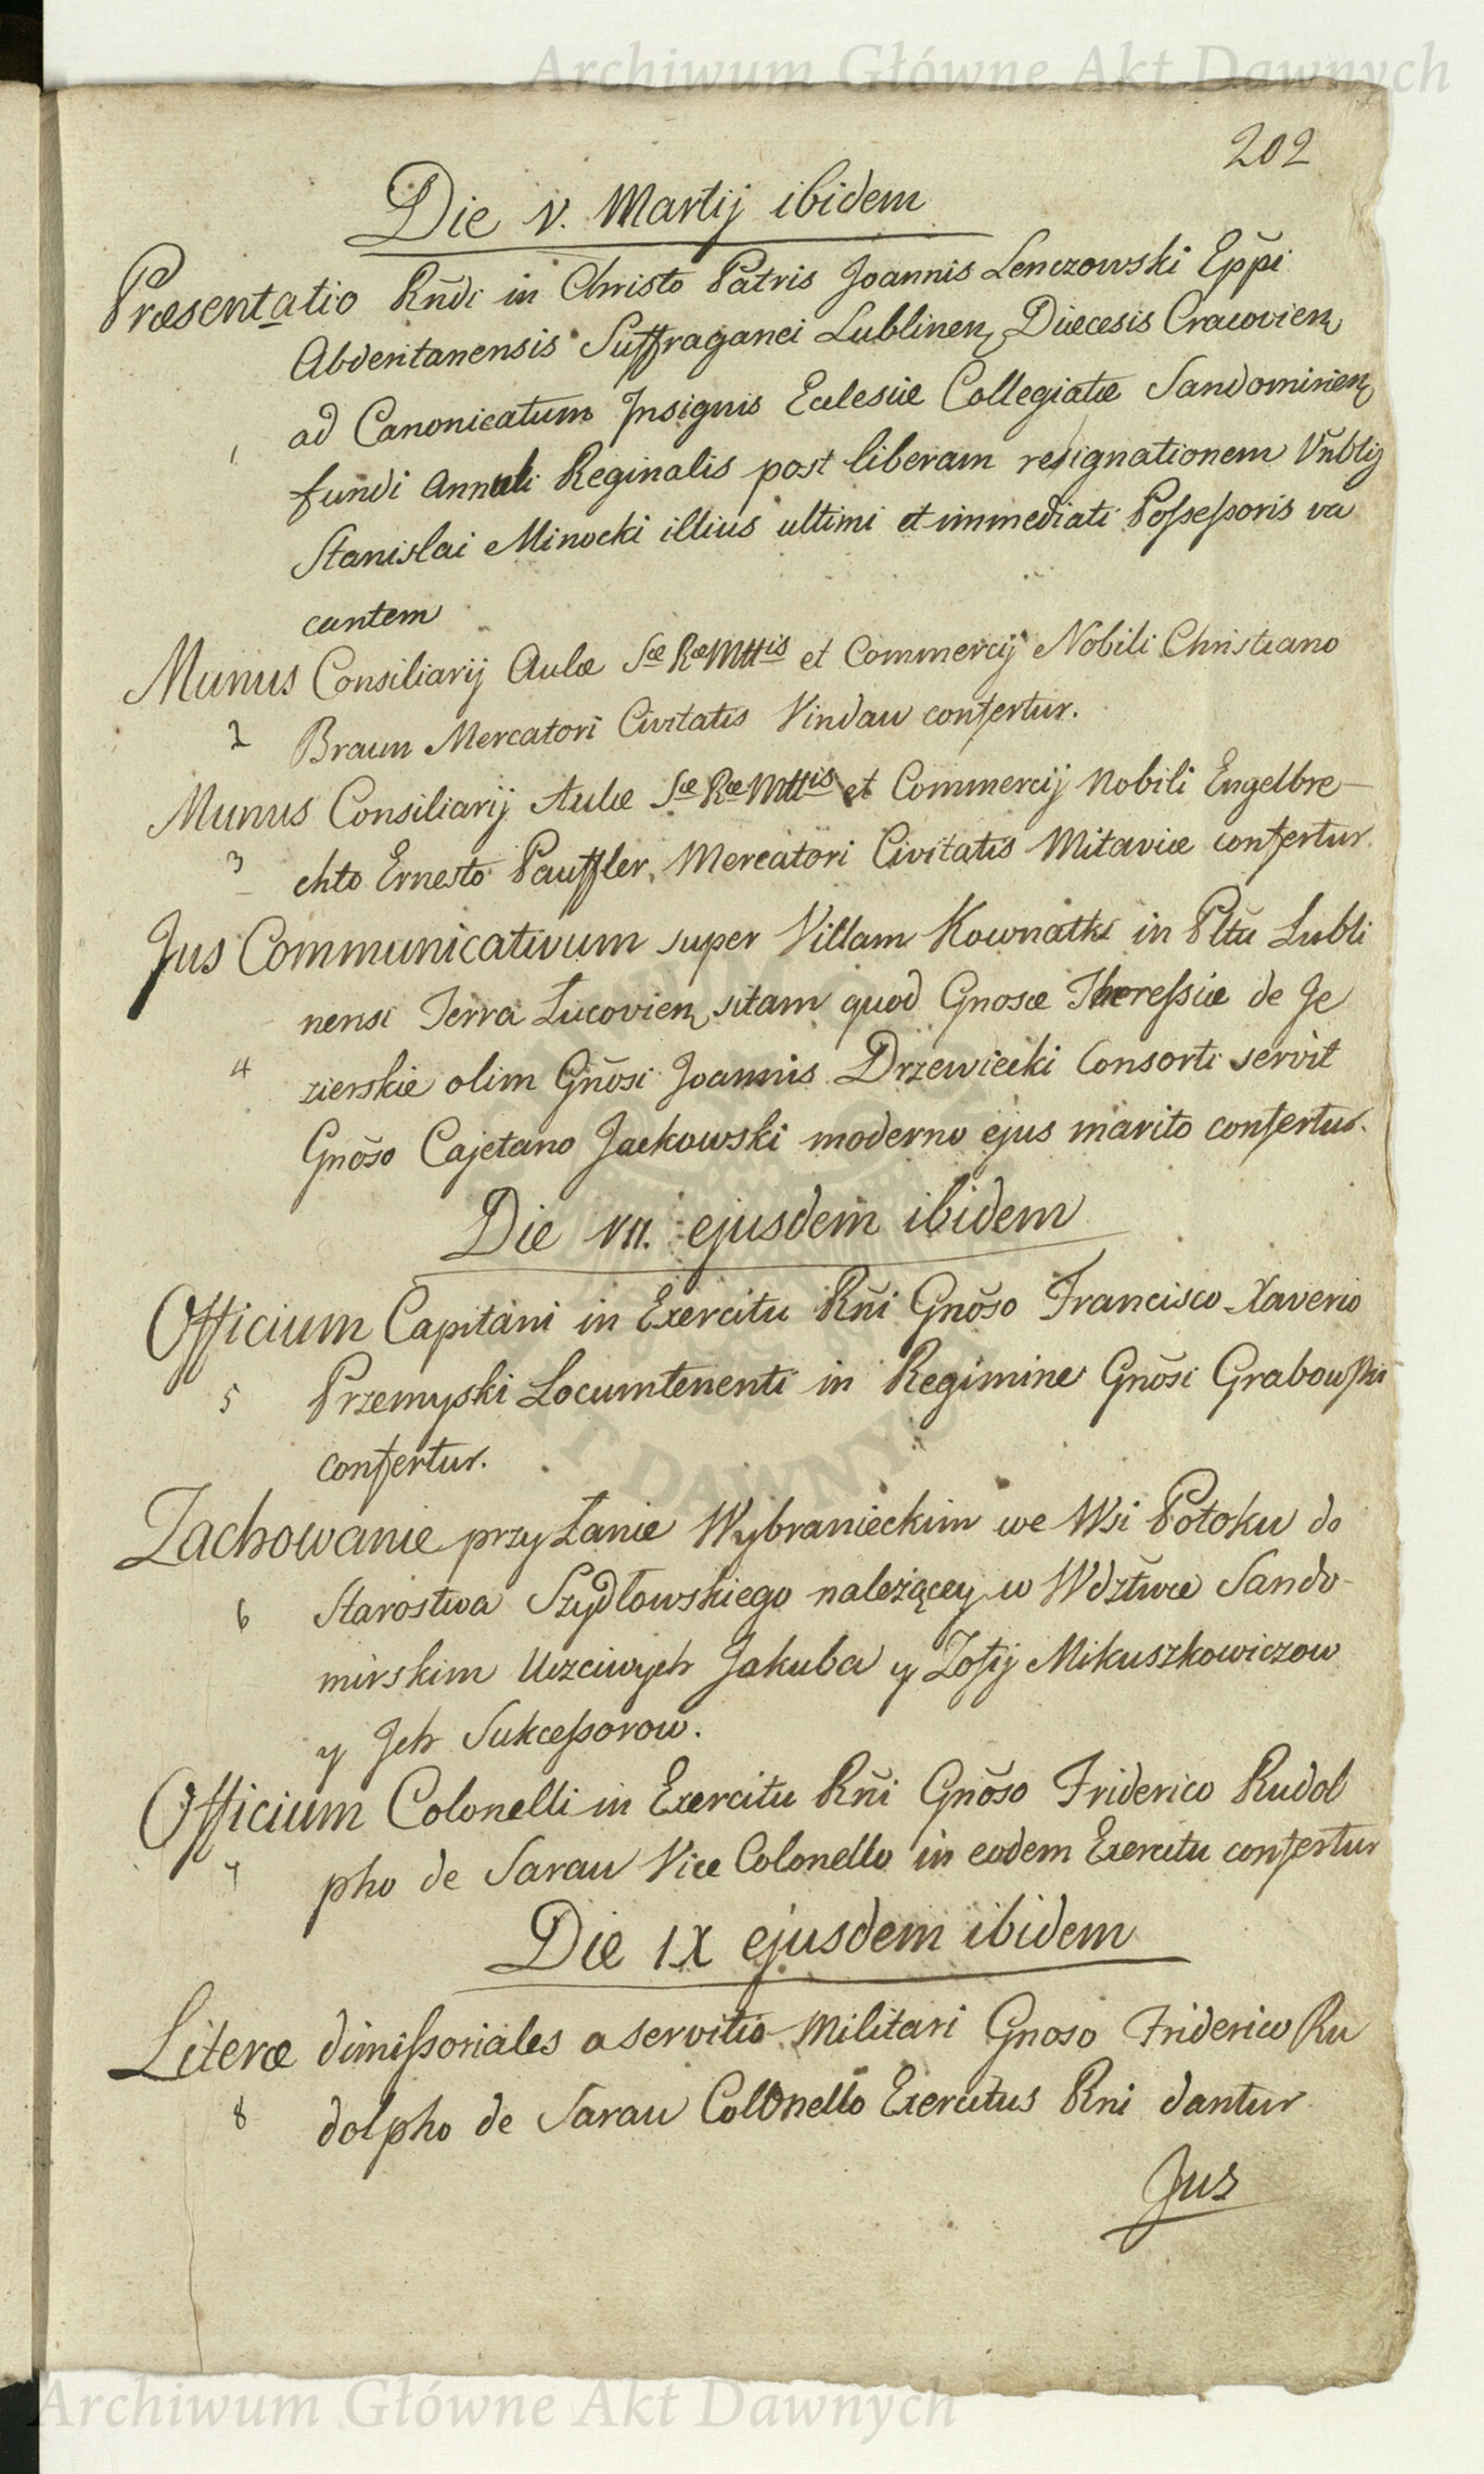 Archiwum Główne Akt Dawnych
202
Die V. Martij ibidem
Præsentatio Rñdi in Christo Patris Joannis Lenczowski Eppi
Abderitanensis Suffraganei Lublinen Diæcesis Cracovien
1 ad Canonicatum Insignis Ecclesiæ Collegiatæ Sandomirien
fundi Annuli Reginalis post liberam resignationem Vñblis
Stanislai Minocki illius ultimi et immediati Possessoris va
cantem
Munus Consiliarij Aulæ Sæ Ræ Mttis et Commercij Nobili Christiano
2 Braun Mercatori Civitatis Vindau confertur.
Munus Consiliarij Aulæ Sæ Ræ Mttis et Commercij Nobili Engelbre–
3 chto Ernesto Pauffler, Mercatori Civitatis Mitaviæ confertur.
Jus Communicativum super Villam Kownatki in Pltũ Lubli
nensi Terra Łucovien sitam quod Gnosæ Theressiæ de Je
4 zierskie olim Gñosi Joannis Drzewiecki Consorti servit
Gnõso Cajetano Jackowski moderno ejus marito confertur.
Die VII. ejusdem ibidem
Officium Capitani in Exercitu Rñi Gnõso Francisco Xaverio
5 Przemyski Locumtenenti in Regimine Gnõsi Grabowski
confertur.
Zachowanie przy Łanie Wybranieckim we Wsi Potoku do
6 Starostwa Szydłowskiego należącey w Wdztwie Sando-
mirskim Uczciwych Jakuba y Zofij Mikuszkowiczow
y Jch Sukcessorow.
Officium Colonelli in Exercitu Rñi Gnõso Friderico Rudol
7 pho de Sarau Vice Colonello in eodem Exercitu confertur
Die IX ejusdem ibidem
Literæ dimissoriales a servitio Militari Gnoso Friderico Ru
8 dolpho de Sarau Colonello Exercitus Rni dantur
Jus
Archiwum Główne Akt Dawnych